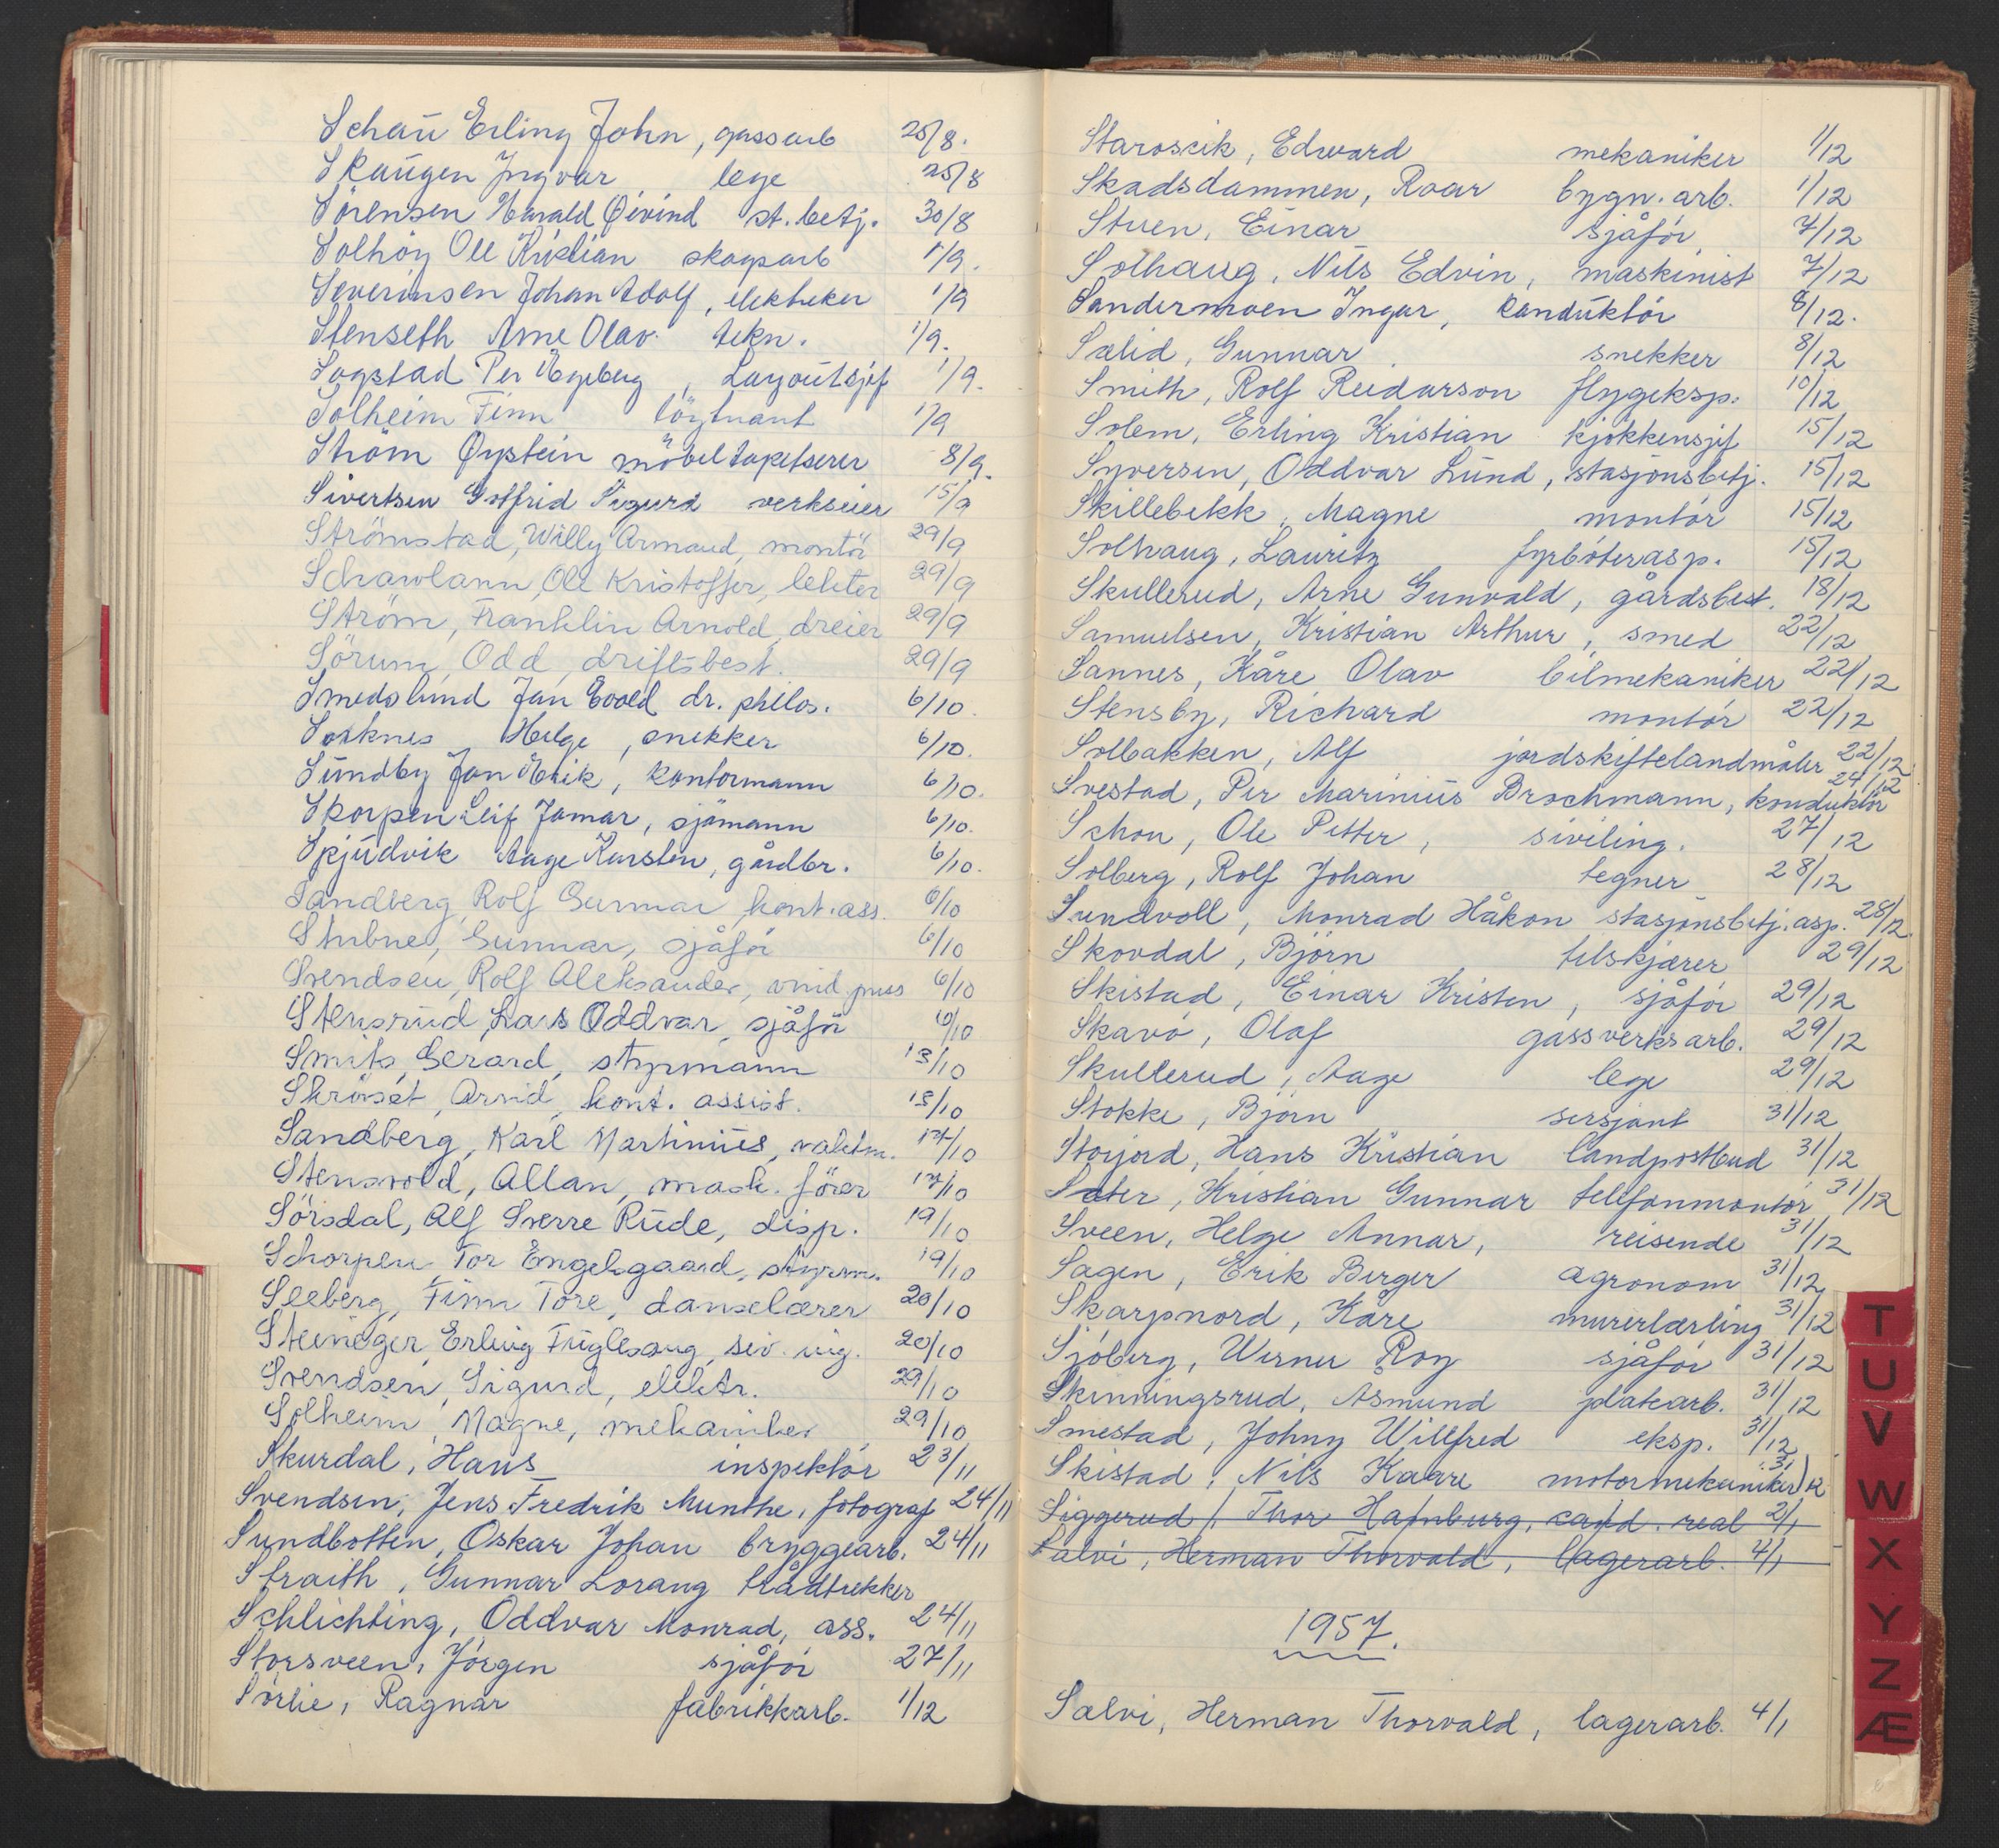 Schau Erling John, gassarb 25/8.
Skaugen Ingvar lege 25/8
Sörensen Harald Øivind st.betj. 30/8
Solhöy Ole Kristian skogsarb 1/9.
Severinsen Johan Adolf, elektriker 1/9
Stenseth Arne Olav tekn. 1/9.
Sogstad Per Egeberg, Layoutsjef 1/9.
Solheim Finn löytnant 1/9
Ström Øystein möbeltapetserer 8/9.
Sivertsen Gotfrid Sigurd verkseier 15/9
Strömstad, Willy Armand, montör 29/9
Schawlann, Ole Kristoffer, lektor 29/9
Ström, Franklin Arnold, dreier 29/9
Sörum, Odd, driftsbest. 29/9
Smedslund Jan Evald dr. philos. 6/10.
Sorknes Helge, snekker 6/10.
Sundby Jan Erik, kontormann 6/10.
Skorpen Leif Jomar, sjömann 6/10.
Skjudvik Aage Karsten, gårdbr. 6/10.
Sandberg, Rolf Gunnar, kont.ass. 6/10
Stubne, Gunnar, sjåför 6/10
Svendsen, Rolf Aleksander, vind.puss 6/10
Stensrud, Lars Oddvar, sjåför 6/10
Smits, Gerard, styrmann 13/10
Skröset, Arvid, kont. assist. 15/10
Sandberg, Karl Martinius, vaktm. 17/10
Stensvold, Allan, mask. förer 17/10
Sörsdal, Alf Sverre Rude, disp. 19/10
Schorpen Tor Engelsgaard, styrm. 19/10
Seeberg, Finn Tore, danselærer 20/10
Steineger, Erling Fuglesang, siv. ing. 20/10
Svendsen, Sigurd, elektr. 29/10
Solheim, Magne, mekaniker 29/10
Skurdal, Hans inspektör 23/11
Svendsen, Jens Fredrik Munthe, fotograf 24/11
Sundbotten, Oskar Johan bryggearb. 24/11
Straith, Gunnar Lorang trådtrekker
Schlichting, Oddvar Monrad, ass. 24/11
Storsveen, Jörgen sjåför 27/11
Sörlie, Ragnar fabrikkarb. 1/12
Staroscik, Edward mekaniker 1/12
Skadsdammen, Roar bygn.arb. 1/12
Stuen, Einar sjåför, 7/12
Solhaug, Nils Edvin, maskinist 7/12
Sandermoen Ingar, konduktör 8/12.
Sælid, Gunnar snekker 8/12
Smith, Rolf Reidarson flygeksp. 10/12
Solem, Erling Kristian kjökkensjef 15/12
Syversen, Oddvar Lund, stasjonsbetj. 15/12
Skillebekk, Magne montör 15/12
Solhaug, Lauritz fyrböterasp. 15/12
Skullerud, Arne Gunvald, gårdsbest. 18/12
Samuelsen, Kristian Arthur, smed 22/12
Sannes, Kåre Olav bilmekaniker 22/12
Stensby, Richard montör 22/12
Solbakken, Alf jordskiftelandmåler 22/12
Svestad, Per Marinius Brochmann, konduktör 24/12
Schou, Ole Petter, siviling. 27/12
Solberg, Rolf Johan tegner 28/12
Sundvoll, Monrad Håkon stasjonsbetj.asp. 28/12.
Skovdal, Björn tilskjærer 29/12
Skistad, Einar Kristen, sjåför 29/12
Skavö, Olaf gassverksarb. 29/12
Skullerud, Aage lege 29/12
Stokke, Björn sersjant 31/12
Storjord, Hans Kristian landpostbud 31/12
Sæter, Kristian Gunnar telefonmontör 31/12
Sveen, Helge Annar, reisende 31/12
Sagen, Erik Birger agronom 31/12
Skarpnord, Kåre murerlærling 31/12
Sjöberg, Werner Roy sjåför 31/12
Skinningsrud, Asmund platearb. 31/12
Smestad, Johny Willfred eksp. 31/12
Skistad, Nils Kaare motormekaniker 31/12
Siggerud, Thor Hamburg, cand. real 2/1
Sælvi, Herman Thorvald, lagerarb. 4/1
1957.
Sælvi, Herman Thorvald, lagerarb. 4/1
T
U
V
W
X
Y
Z
Æ